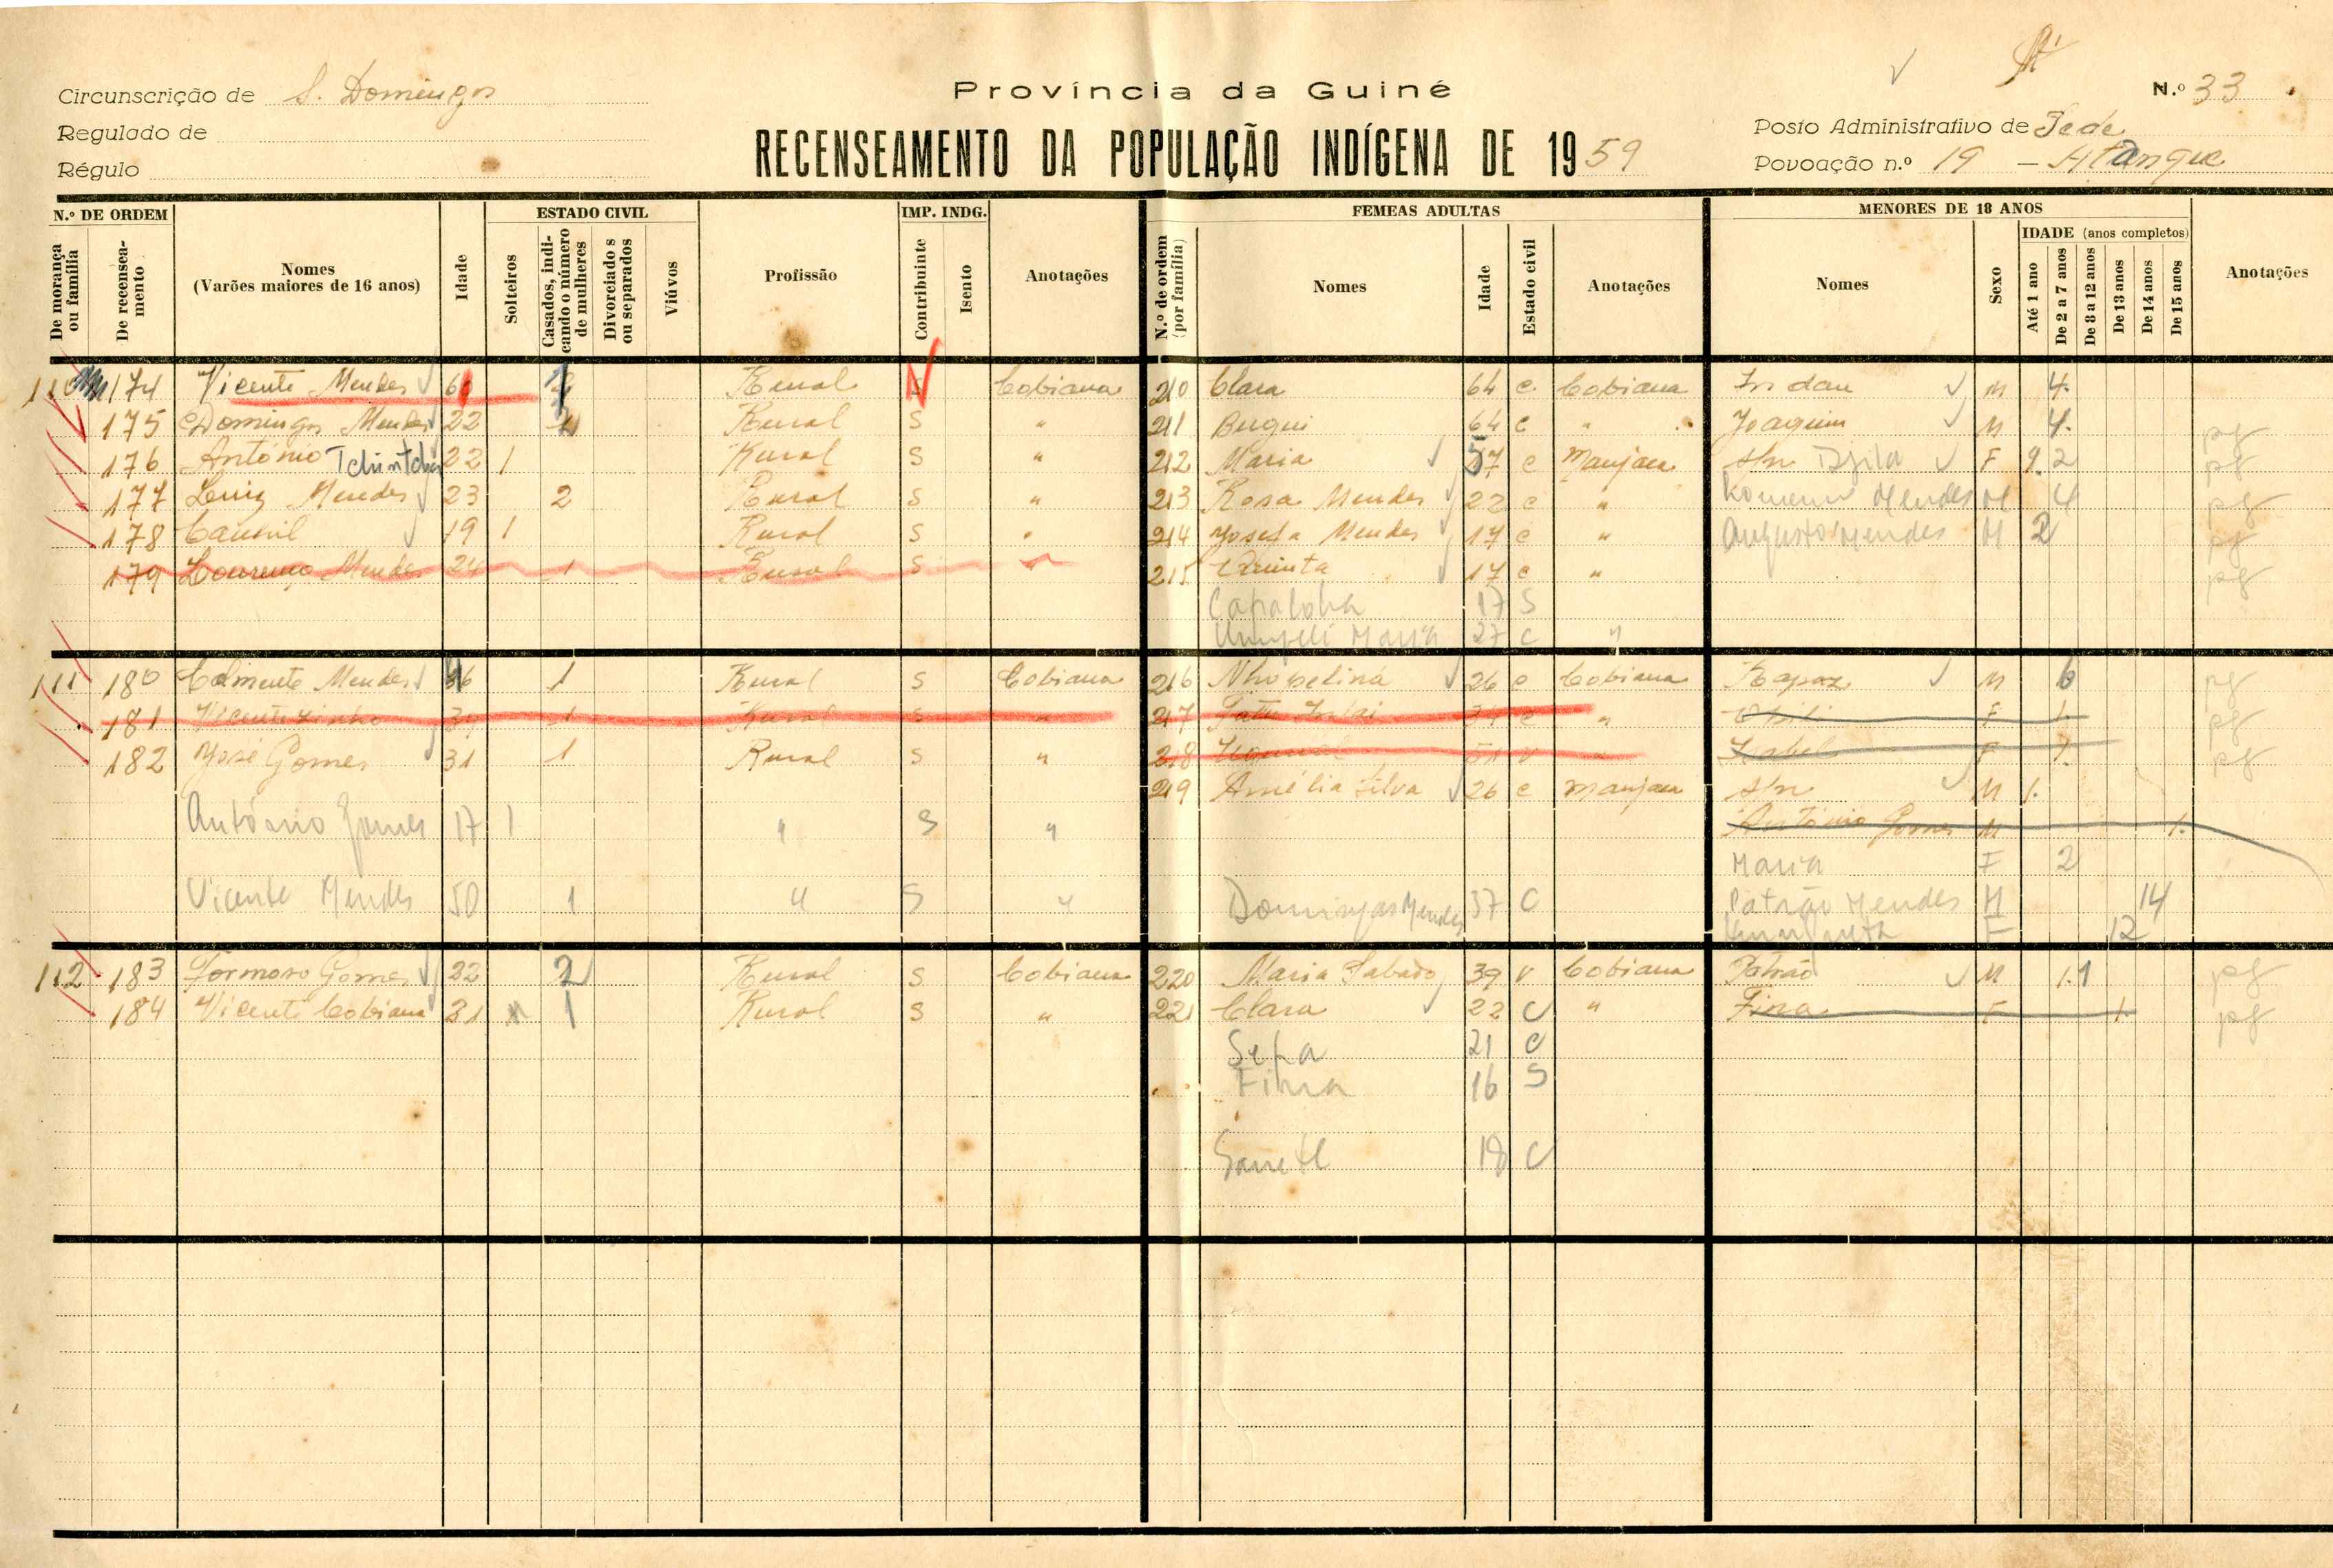 Província da Guiné
N.º 33
Circunscrição de S. Domingos
Regulado de
Régulo
RECENSEAMENTO DA POPULAÇÃO INDÍGENA DE 1959
Posto Administrativo de Sede
Povoação n.º 19 –
N.º DE ORDEM
De morança ou família
De recenseamento
Nomes
(Varões maiores de 16 anos)
Idade
ESTADO CIVIL
Solteiros
Casados, indicando o número de mulheres
Divorciado s ou separados
Viúvos
Profissão
IMP. INDG.
Contribuinte
Isento
Anotações
FEMEAS ADULTAS
N.º de ordem (por família)
Nomes
Idade
Estado civil
Anotações
MENORES DE 18 ANOS
Nomes
Sexo
IDADE (anos completos)
Até 1 ano
De 2 a 7 anos
De 8 a 12 anos
De 13 anos
De 14 anos
De 15 anos
Anotações
110 174 Vicente Mendes Rural Cobiana 210 Clara 64 c. Cobiana M 4.
175 Domingos Mendes 22 Rural S " 211 Bugui 64 c " Joaquim M 4. pg
176 António 22 1 Rural S " 212 Maria 57 c Manjaca s/n F 2 pg
177 Luiz Mendes 23 2 Rural S " 213 Rosa Mendes 22 c " Mendes M 4 pg
178 19 1 Rural S " 214 Josefa Mendes 17 c " Augusto Mendes M 2 pg
179 Lourenço Mendes 24 1 Rural S " 215 Quinta 17 c " pg
17 S
Maria 27 C "
111 180 Mendes 1 Rural S Cobiana 216 26 c Cobiana Rapaz M 6 pg
181 Vicentezinho 1 Rural S " 217 c " F 1. pg
182 José Gomes 31 1 Rural S " 218 v " F pg
219 Amélia Silva 26 c Manjaca s/n M 1.
António Gomes 17 1 " S " António Gomes M 1.
Maria F 2
Vicente Mendes 50 1 " S " Domingas Mendes 37 C Patrão Mendes M 14
F 12
112 183 Formoso Gomes 22 2 Rural S Cobiana 220 Maria Sabado 39 v Cobiana Patrão M 1.1 pg
184 Vicente Cobiana 31 1 Rural S " 221 Clara 22 C " Fina F 1. pg
Sefa 21 C
Fina 16 S
18 C